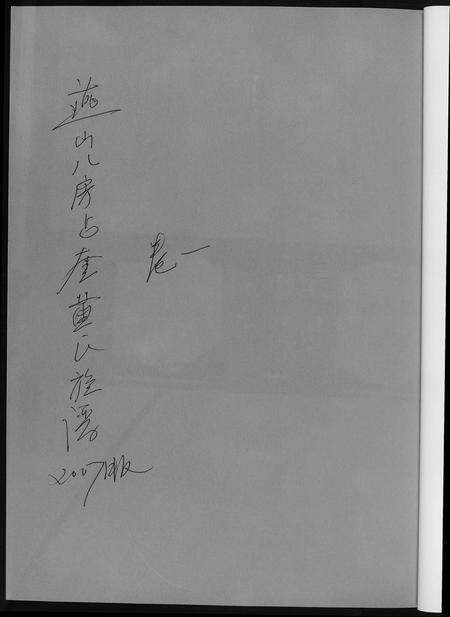 燕山八房占奎黄氏族谱
2007版
卷一